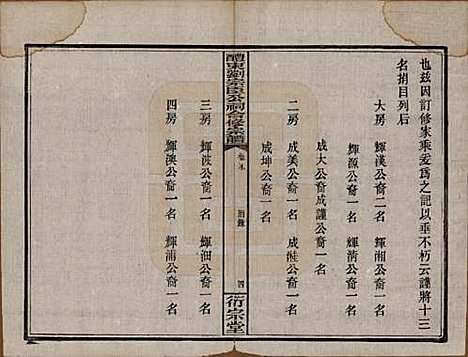 也茲因訂修家乘爰為之記以垂不朽云謹將十三
名捐目列后
大房 輝漢公裔二名 輝湘公裔一名
輝源公裔一名 輝清公裔一名
成大公裔成謹公裔一名
二房 成美公裔一名 成 公裔一名
成坤公裔一名
醴東劉宗臣公祠合修宗譜 卷 四 衍宗堂
三房 輝 公裔一名 輝 公裔一名
四房 輝澳公裔一名 輝浦公裔一名